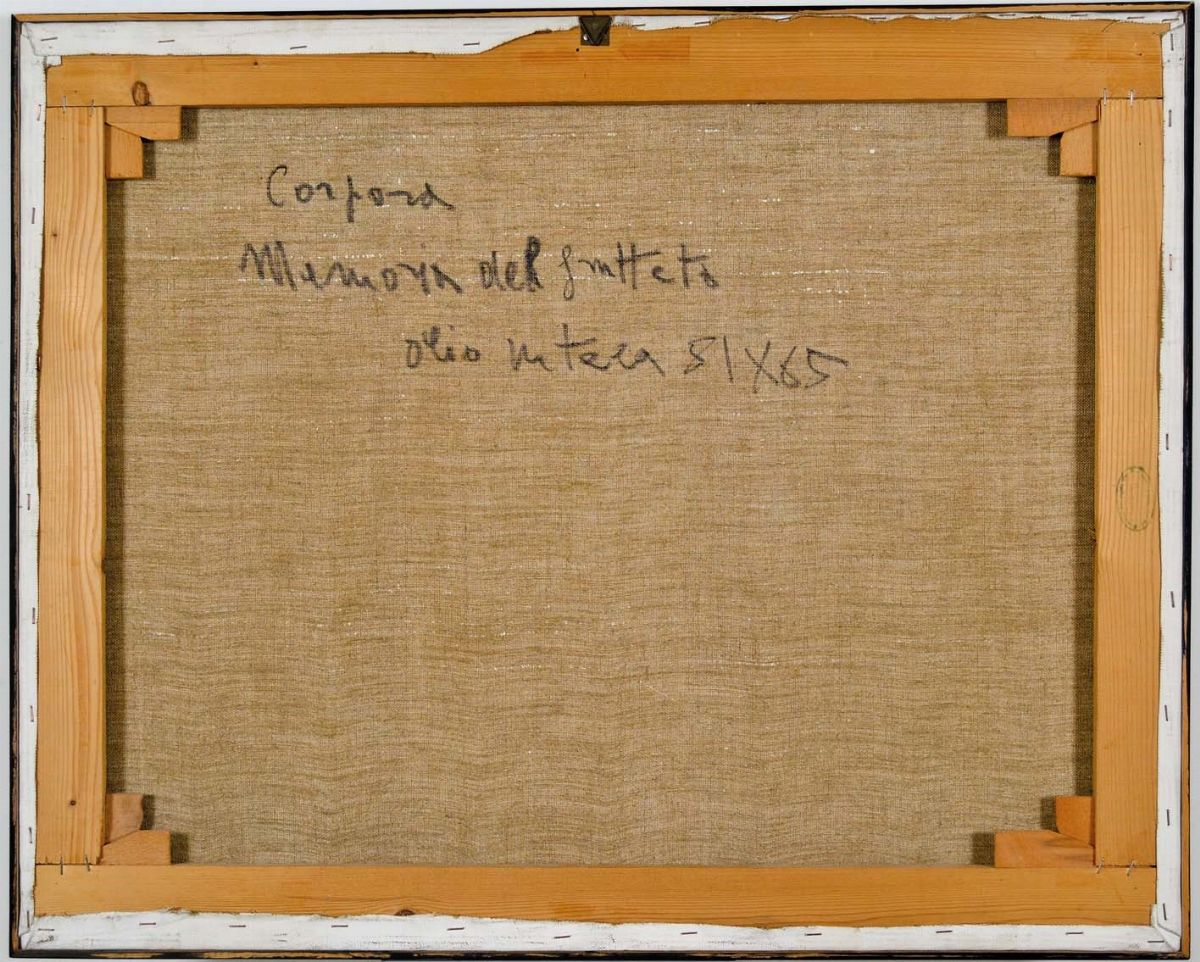 Corpora
Memoria del frutteto
olio su tela 51X65